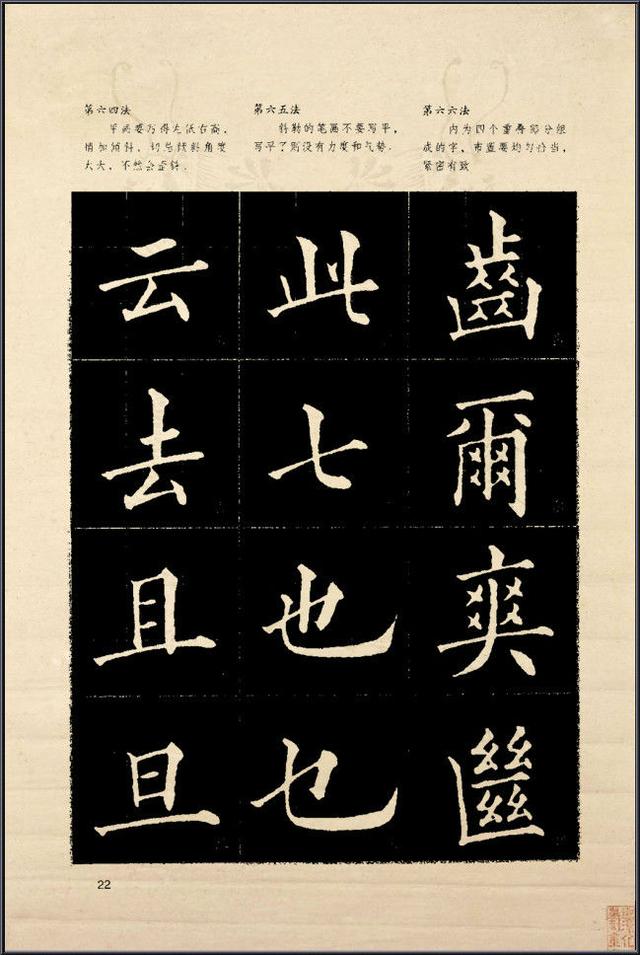 第六四法
平画要写得左低右高，
稍加倾斜，切忌倾斜角度
太大，不然会歪斜．
第六五法
斜勒的笔画不要写平，
写平了则没有力度和气势．
第六六法
内为四个重叠部分组
成的字，布置要均匀恰当，
紧密有致
云
去
且
旦
此
七
也
乜
齒
爾
爽
22